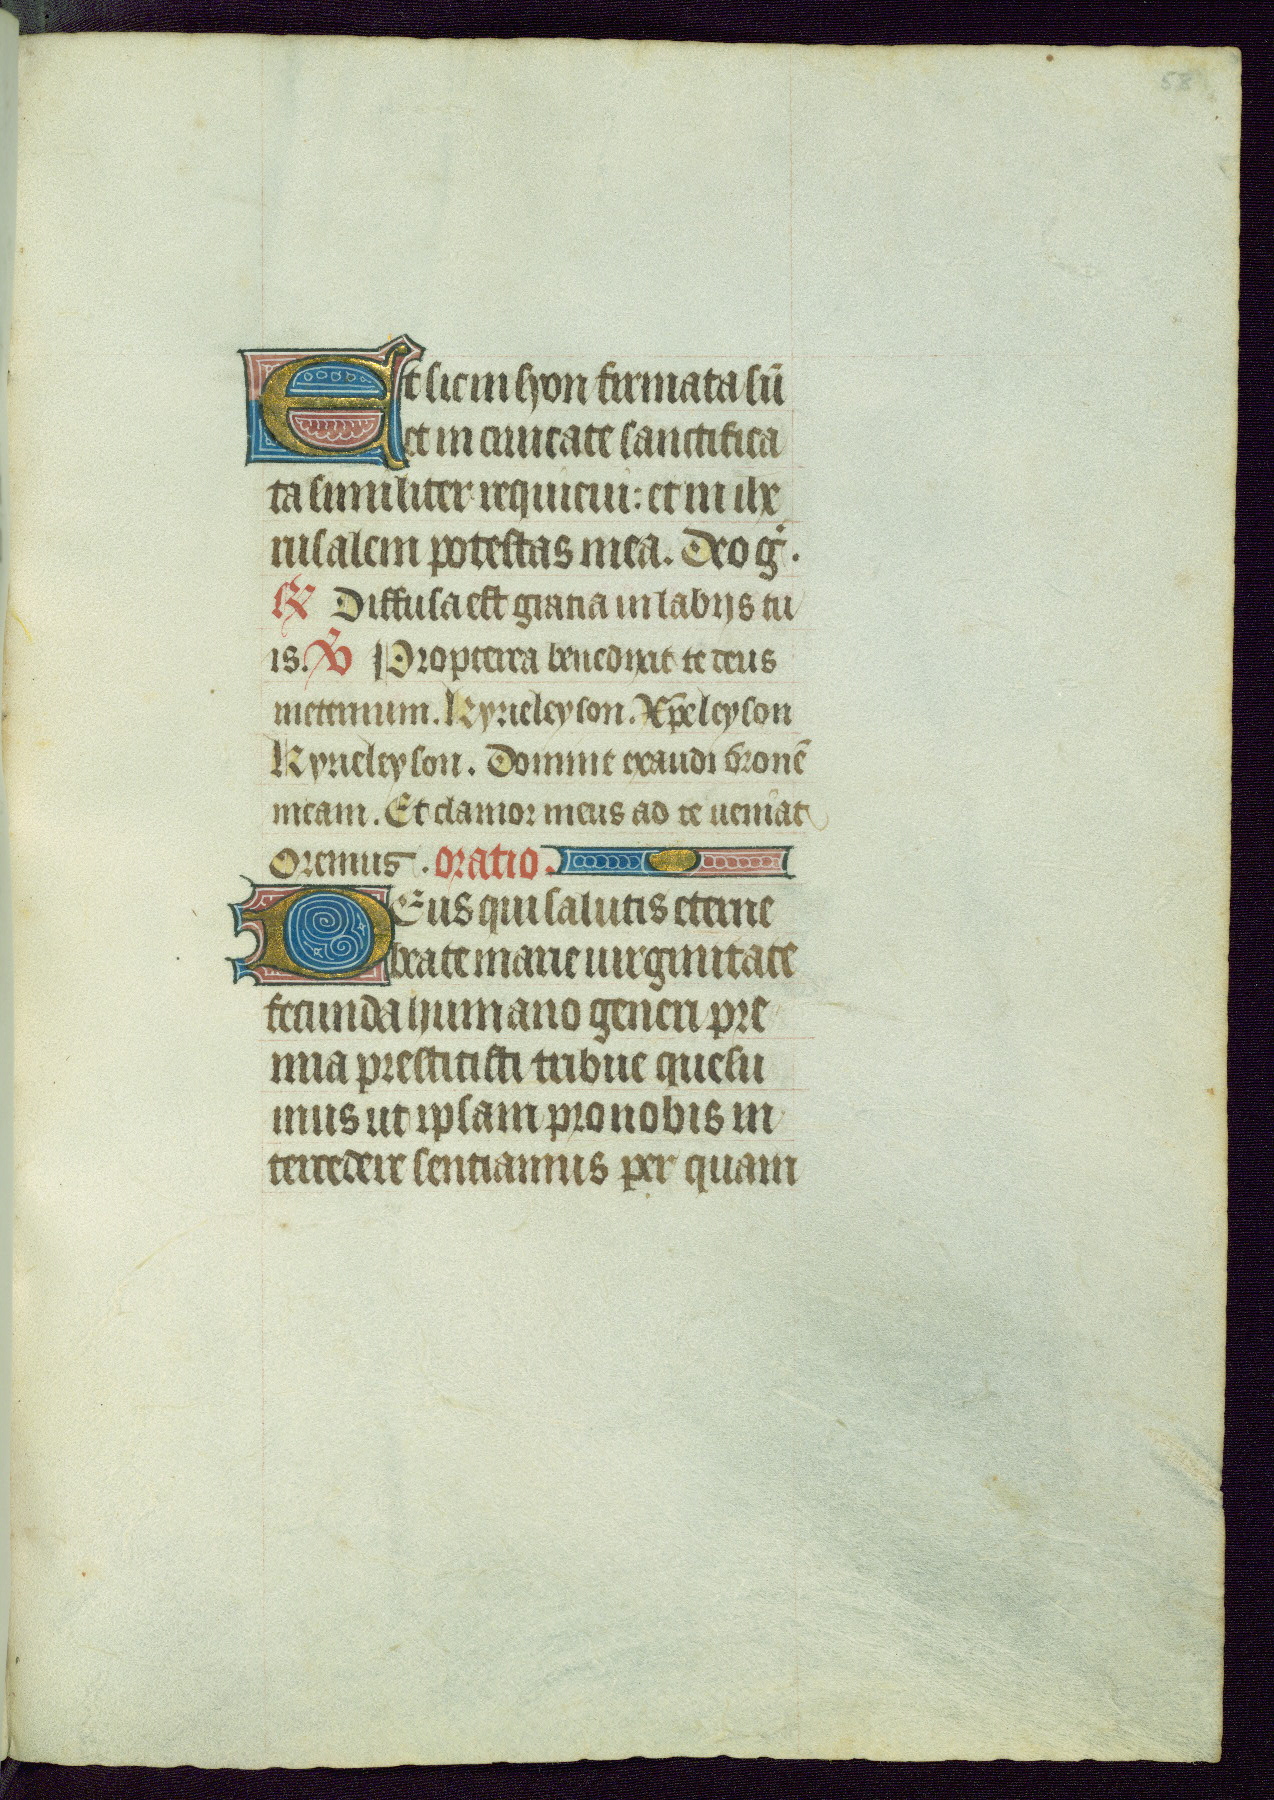 58
Et sic in syon firmata sū
et in ciuitate sanctifica
ta similiter requieui: et in ihe
rusalem potestas mea. Deo g̅.
Diffusa est gratia in labijs tu
is. ℣ Propterea benedixit te deus
in eternum. Kyrieleyson. Xp̅eleyson
Kyrieleyson. Domine exaudi or̅onē
meam. Et clamor meus ad te ueniat
Oremus. oratio.
DEus qui salutis eterne
beate marie uirginitate
fecunda humano generi pre
mia prestitisti tribue quesu
mus ut ipsam pro nobis in
tercedere sentiamus per quam